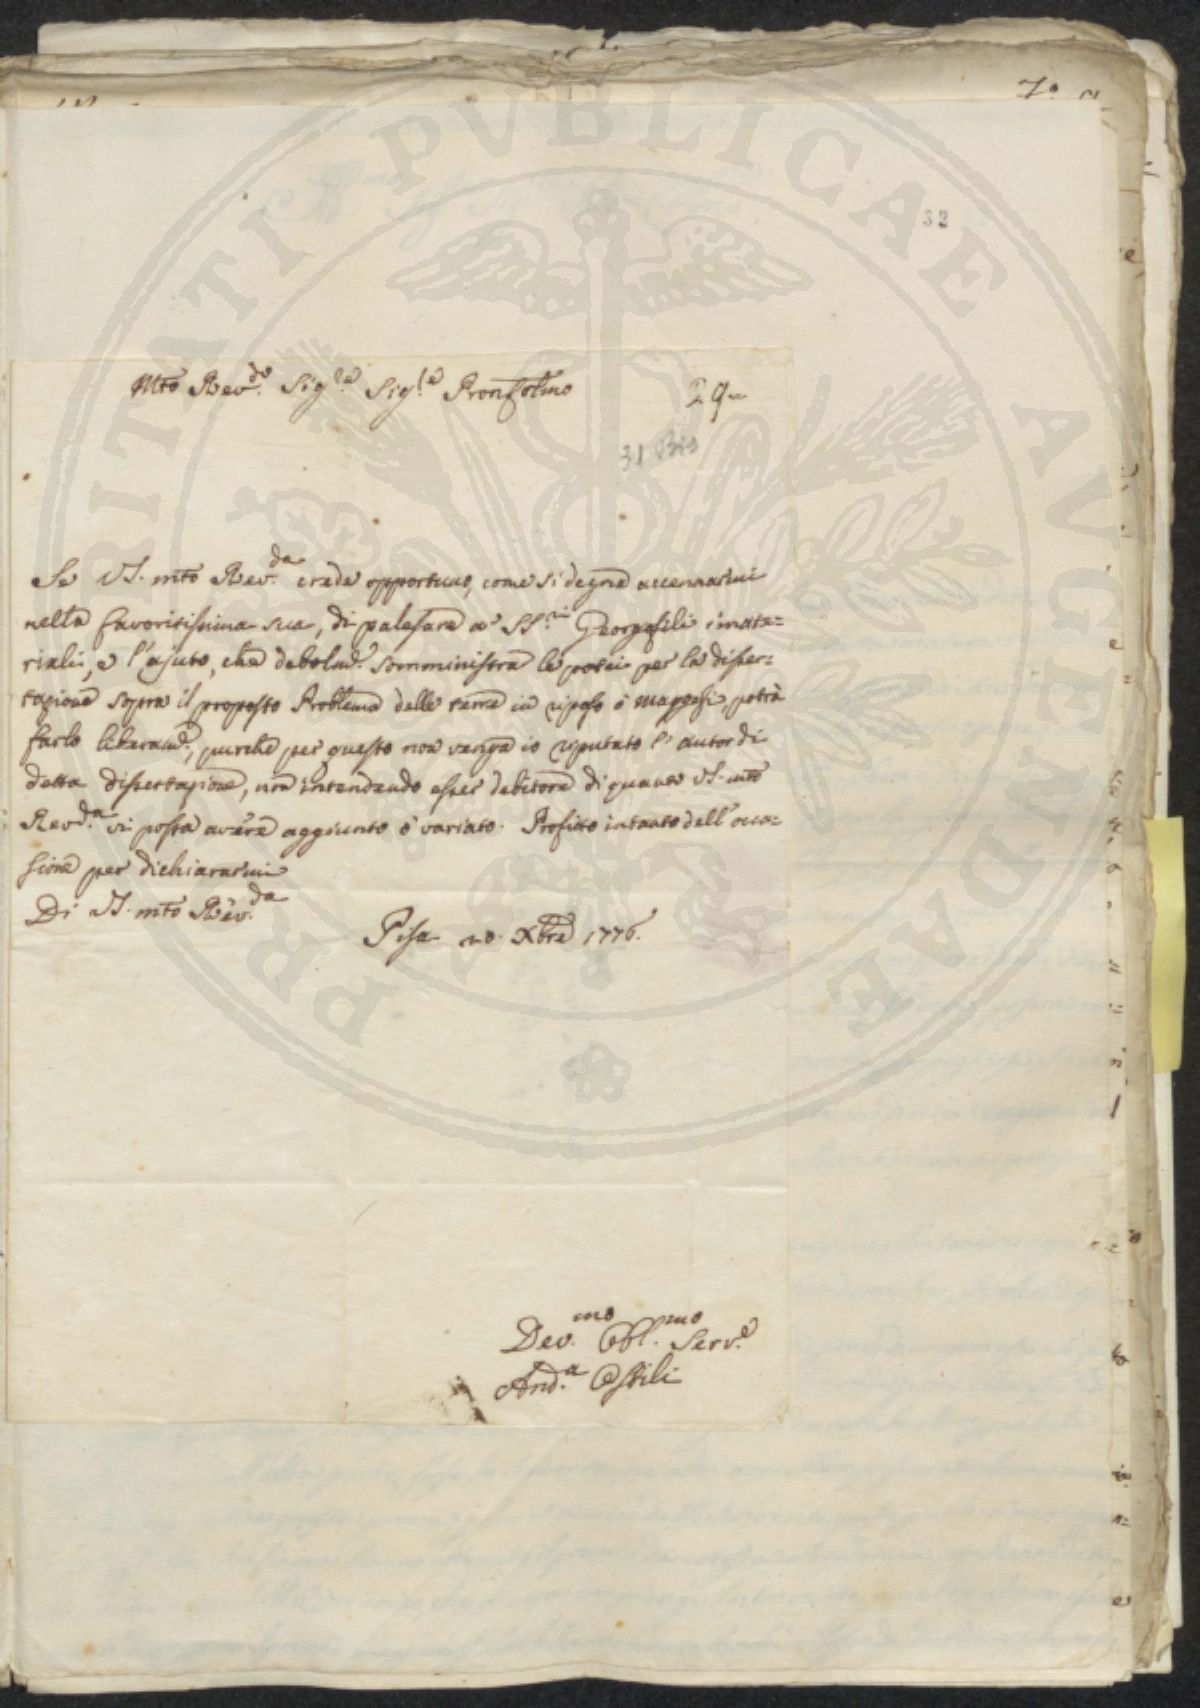 32
Mto Rev.do Sig.re Sig.re Pron Colmo
29
31 Bis
Se VS. mto Rev.da crede opportuno, come si degna accennarmi
nella favoritissima sua, di palesare a' SS.ri Georgofili i mate=
riali, e l'ajuto, che debolm.e somministrai le potei per la disser=
tazione sopra il proposto Problema delle terre in riposo o maggesi, potrà
farlo liberam.e, purchè per questo non venga io riputato l'autor di
detta dissertazione, non intendendo esser debitore di quanto VS. mto
Rev.da vi possa avere aggiunto o variato. Profitto intanto dell'occa=
sione per dichiararmi
Di VS. mto Rev.da
Pisa 20. Xbre 1776.
Dev.mo Obl.mo Serv.e
And.a
PROSPERITATI PVBLICAE AVGENDAE